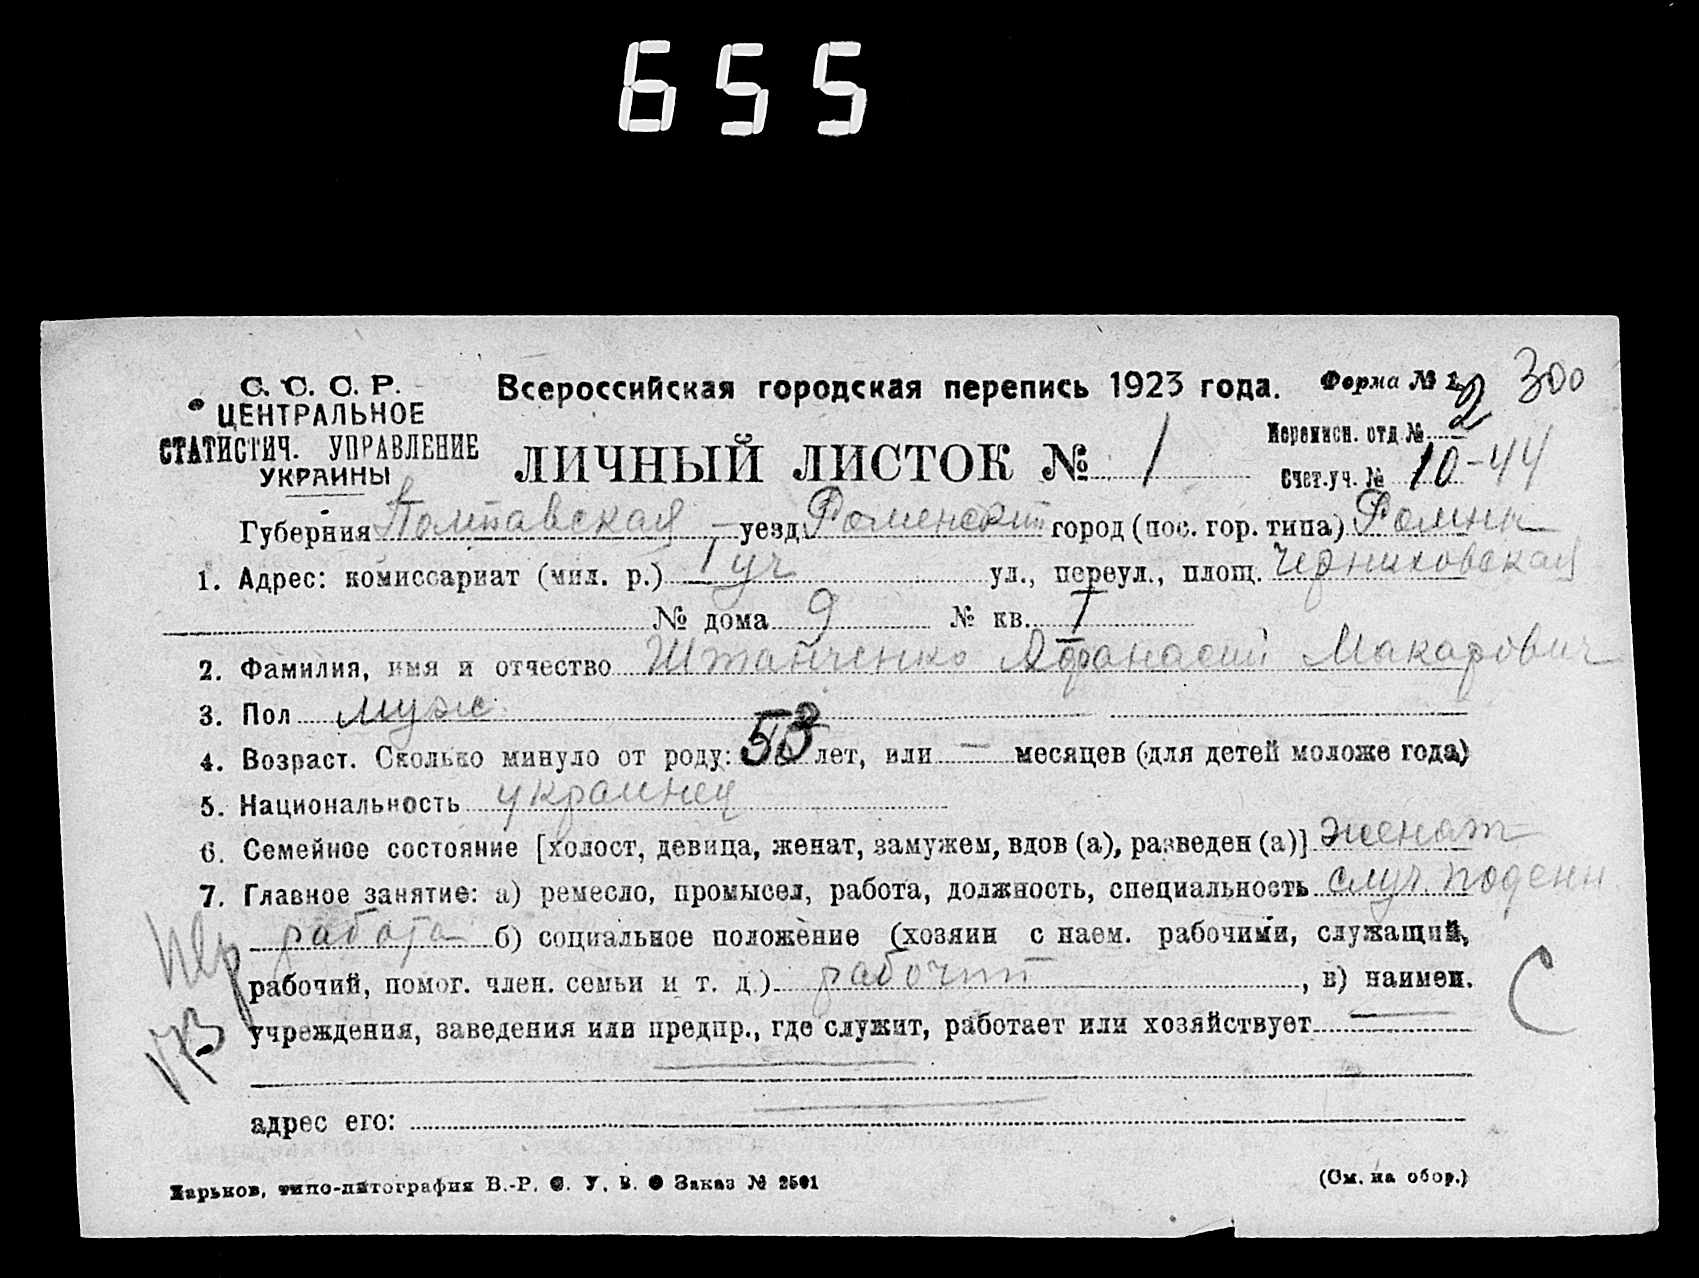 655
С. С. С. Р.
ЦЕНТРАЛЬНОЕ
СТАТИСТИЧ. УПРАВЛЕНИЕ
УКРАИНЫ
Всероссийская городская перепись 1923 года.
Форма № 1. 300
ЛИЧНЫЙ ЛИСТОК № 1
Переписн. отд. № 2
Счет. уч. № 10-44
Губерния Полтавская уезд Роменский город (пос. гор. типа) Ромны
1. Адрес: комиссариат (мил. р.) 1 уч ул., переул., площ. Черниховская
№ дома 9 № кв. 1
2. Фамилия, имя и отчество Штанченко Афанасий Макарович
3. Пол муж.
4. Возраст. Сколько минуло от роду: 53 лет, или — месяцев (для детей моложе года)
5. Национальность украинец
6. Семейное состояние [холост, девица, женат, замужем, вдов (а), разведен (а)] женат
7. Главное занятие: а) ремесло, промысел, работа, должность, специальность случ. поденн
работа б) социальное положение (хозяин с наем. рабочими, служащий,
рабочий, помог. член. семьи и т. д.) рабочий, в) наимен. С
учреждения, заведения или предпр., где служит, работает или хозяйствует —
адрес его:
Харьков, типо-литография В.-Р. С. У. В. О Заказ № 2501
(См. на обор.)